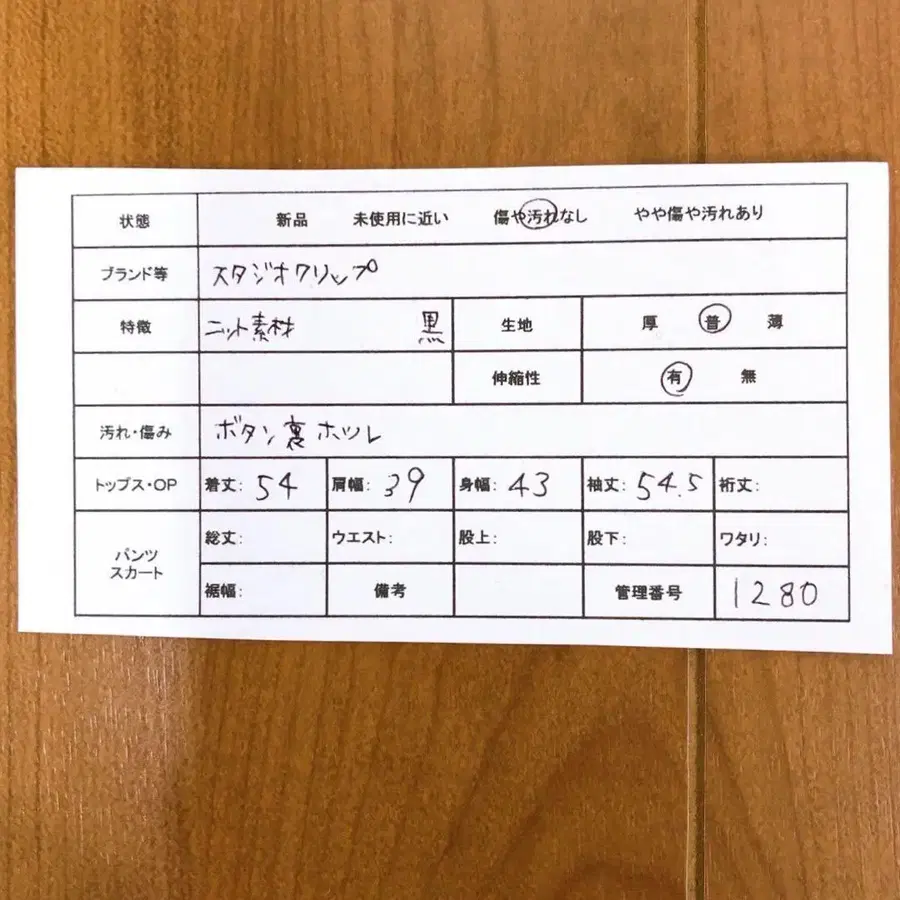 状態 新品 未使用に近い 傷や汚れなし やや傷や汚れあり
ブランド等 スタジオクリップ
特徴 ニット素材 黒 生地 厚 普 薄
伸縮性 有 無
汚れ・傷み ボタン裏ホツレ
トップス・OP 着丈: 54 肩幅: 39 身幅: 43 袖丈: 54.5 裄丈:
パンツ スカート 総丈: ウエスト: 股上: 股下: ワタリ:
裾幅: 備考 管理番号 1280